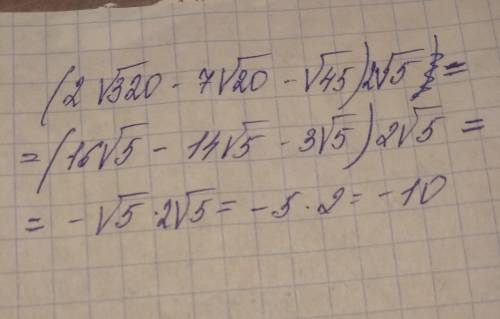 (2√320 - 7√20 - √45)2√5 =
= (16√5 - 14√5 - 3√5)2√5 =
= -√5 · 2√5 = -5 · 2 = -10